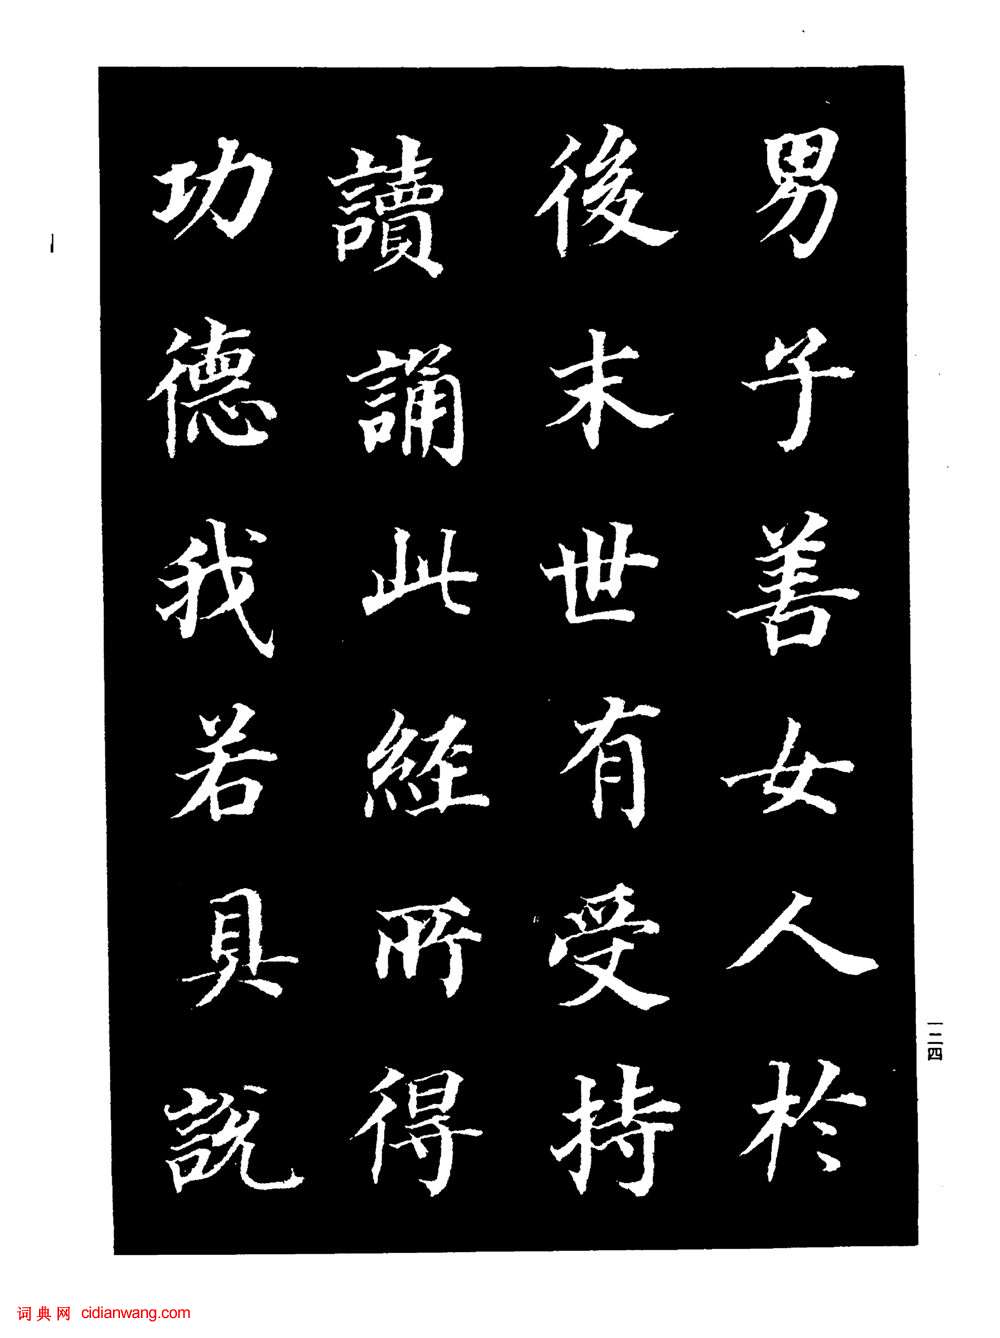 男子善女人於
後末世有受持
讀誦此經所得
功德我若具說
一二四
词典网 cidianwang.com